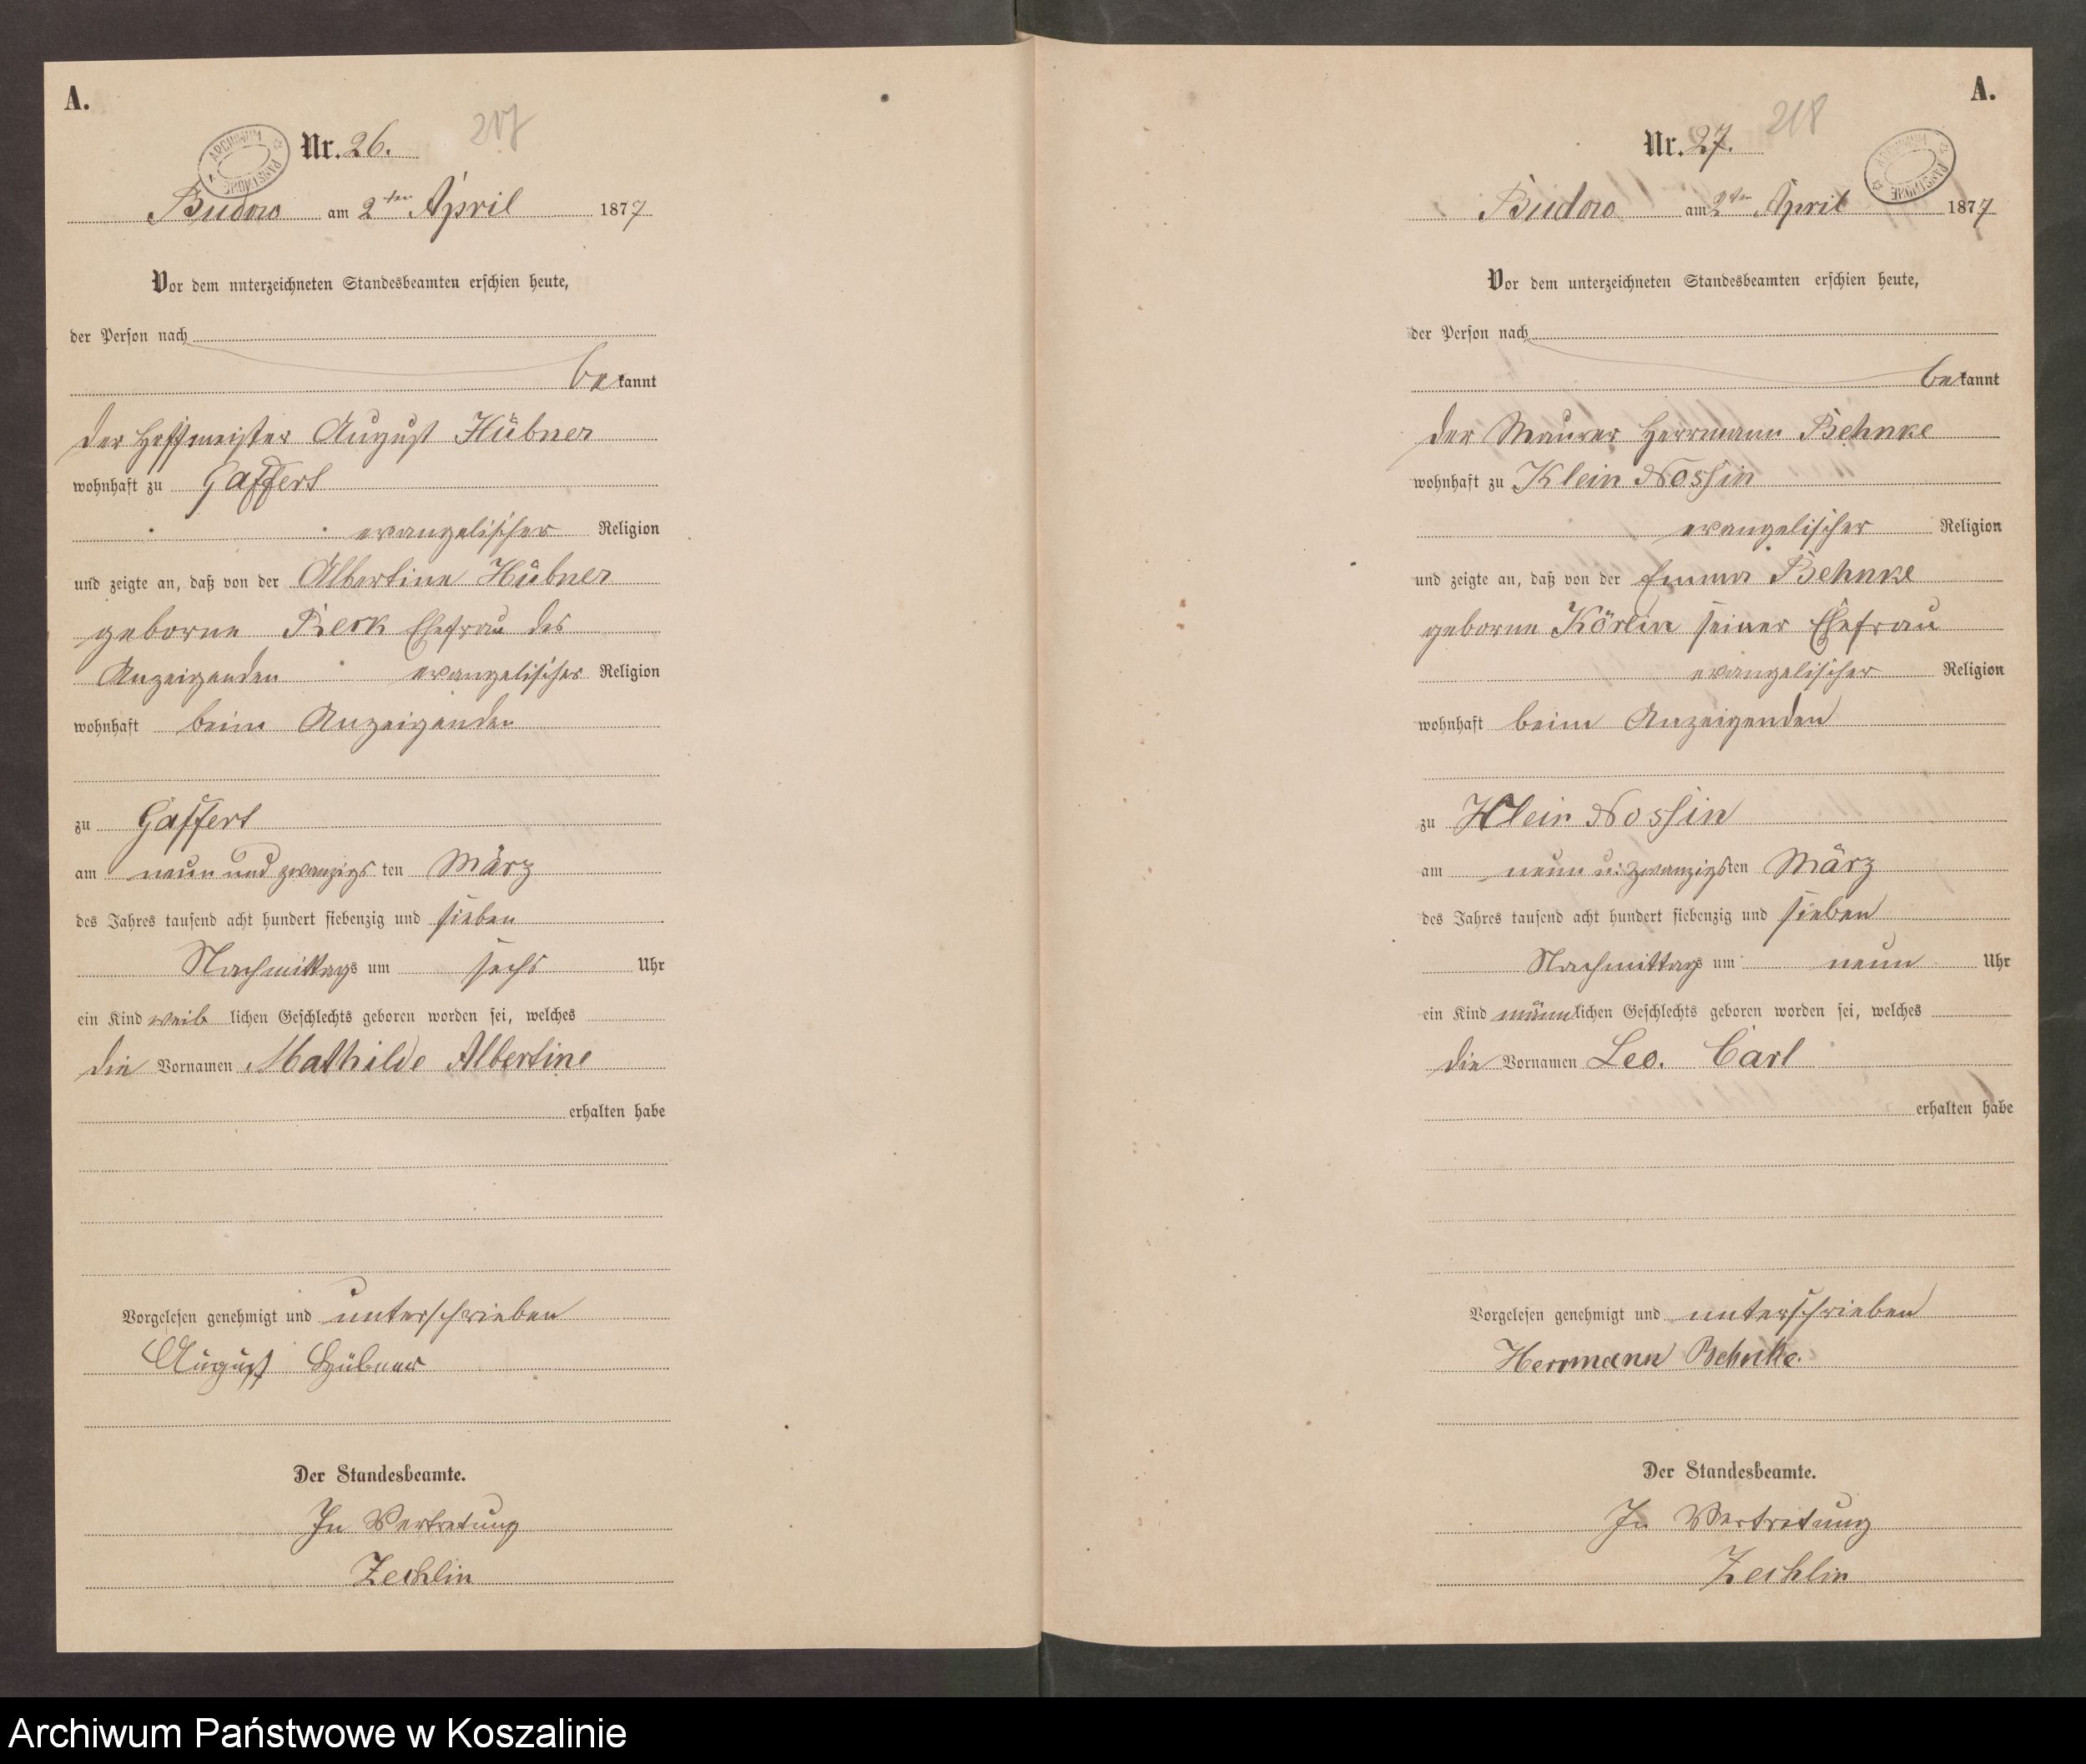 A.
Nr. 26.
217
ARCHIWUM PAŃSTWOWE
Budow am 2ten April 1877
Vor dem nnterzeichneten Standesbeamten erschien heute,
der Person nach
bekannt
der Hofmeister August Hübner
wohnhaft zu Gaffert
evangelischer Religion
und zeigte an, daß von der Albertine Hübner
geborne Reck Ehefrau des
Anzeigenden evangelischer Religion
wohnhaft beim Anzeigenden
zu Gaffert
am neun und zwanzigsten März
des Jahres tausend acht hundert siebenzig und sieben
Nachmittags um sechs Uhr
ein Kind weiblichen Geschlechts geboren worden sei, welches
die Vornamen Mathilde Albertine
erhalten habe
Vorgelesen genehmigt und unterschrieben
August Hübner
Der Standesbeamte.
In Vertretung
Zechlin
A.
Nr. 27.
218
ARCHIWUM PAŃSTWOWE
Budow am 2ten April 1877
Vor dem unterzeichneten Standesbeamten erschien heute,
der Person nach
bekannt
der Maurer Herrmann Behnke
wohnhaft zu Klein Nossin
evangelischer Religion
und zeigte an, daß von der Emma Behnke
geborne Körlin seiner Ehefrau
evangelischer Religion
wohnhaft beim Anzeigenden
zu Klein Nossin
am neun u: zwanzigsten März
des Jahres tausend acht hundert siebenzig und sieben
Nachmittags um neun Uhr
ein Kind männlichen Geschlechts geboren worden sei, welches
die Vornamen Leo. Carl
erhalten habe
Vorgelesen genehmigt und unterschrieben
Herrmann Behnke.
Der Standesbeamte.
In Vertretung
Zechlin
Archiwum Państwowe w Koszalinie